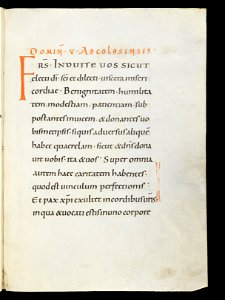 DOMIN̄ · V · AD COLOSENSIS ·
FRS̄ · INDUITE UOS SICUT
electi dī · sc̄i et dilecti · uiscera miseri
cordiae · Benignitatem · humilita
tem · modestiam · patientiam · sub
portantes inuicem · & donantes uo
bismetipsis · siquis aduersus aliquē
habet quaerelam · sicut & dn̄s dona
uit uobis · ita & uos · Super omnia
autem haec caritatem habentes ·
quod est uinculum perfectionis ·
Et pax xp̄i exultet in cordibus ur̄is
in qua & uocati estis in uno corpore